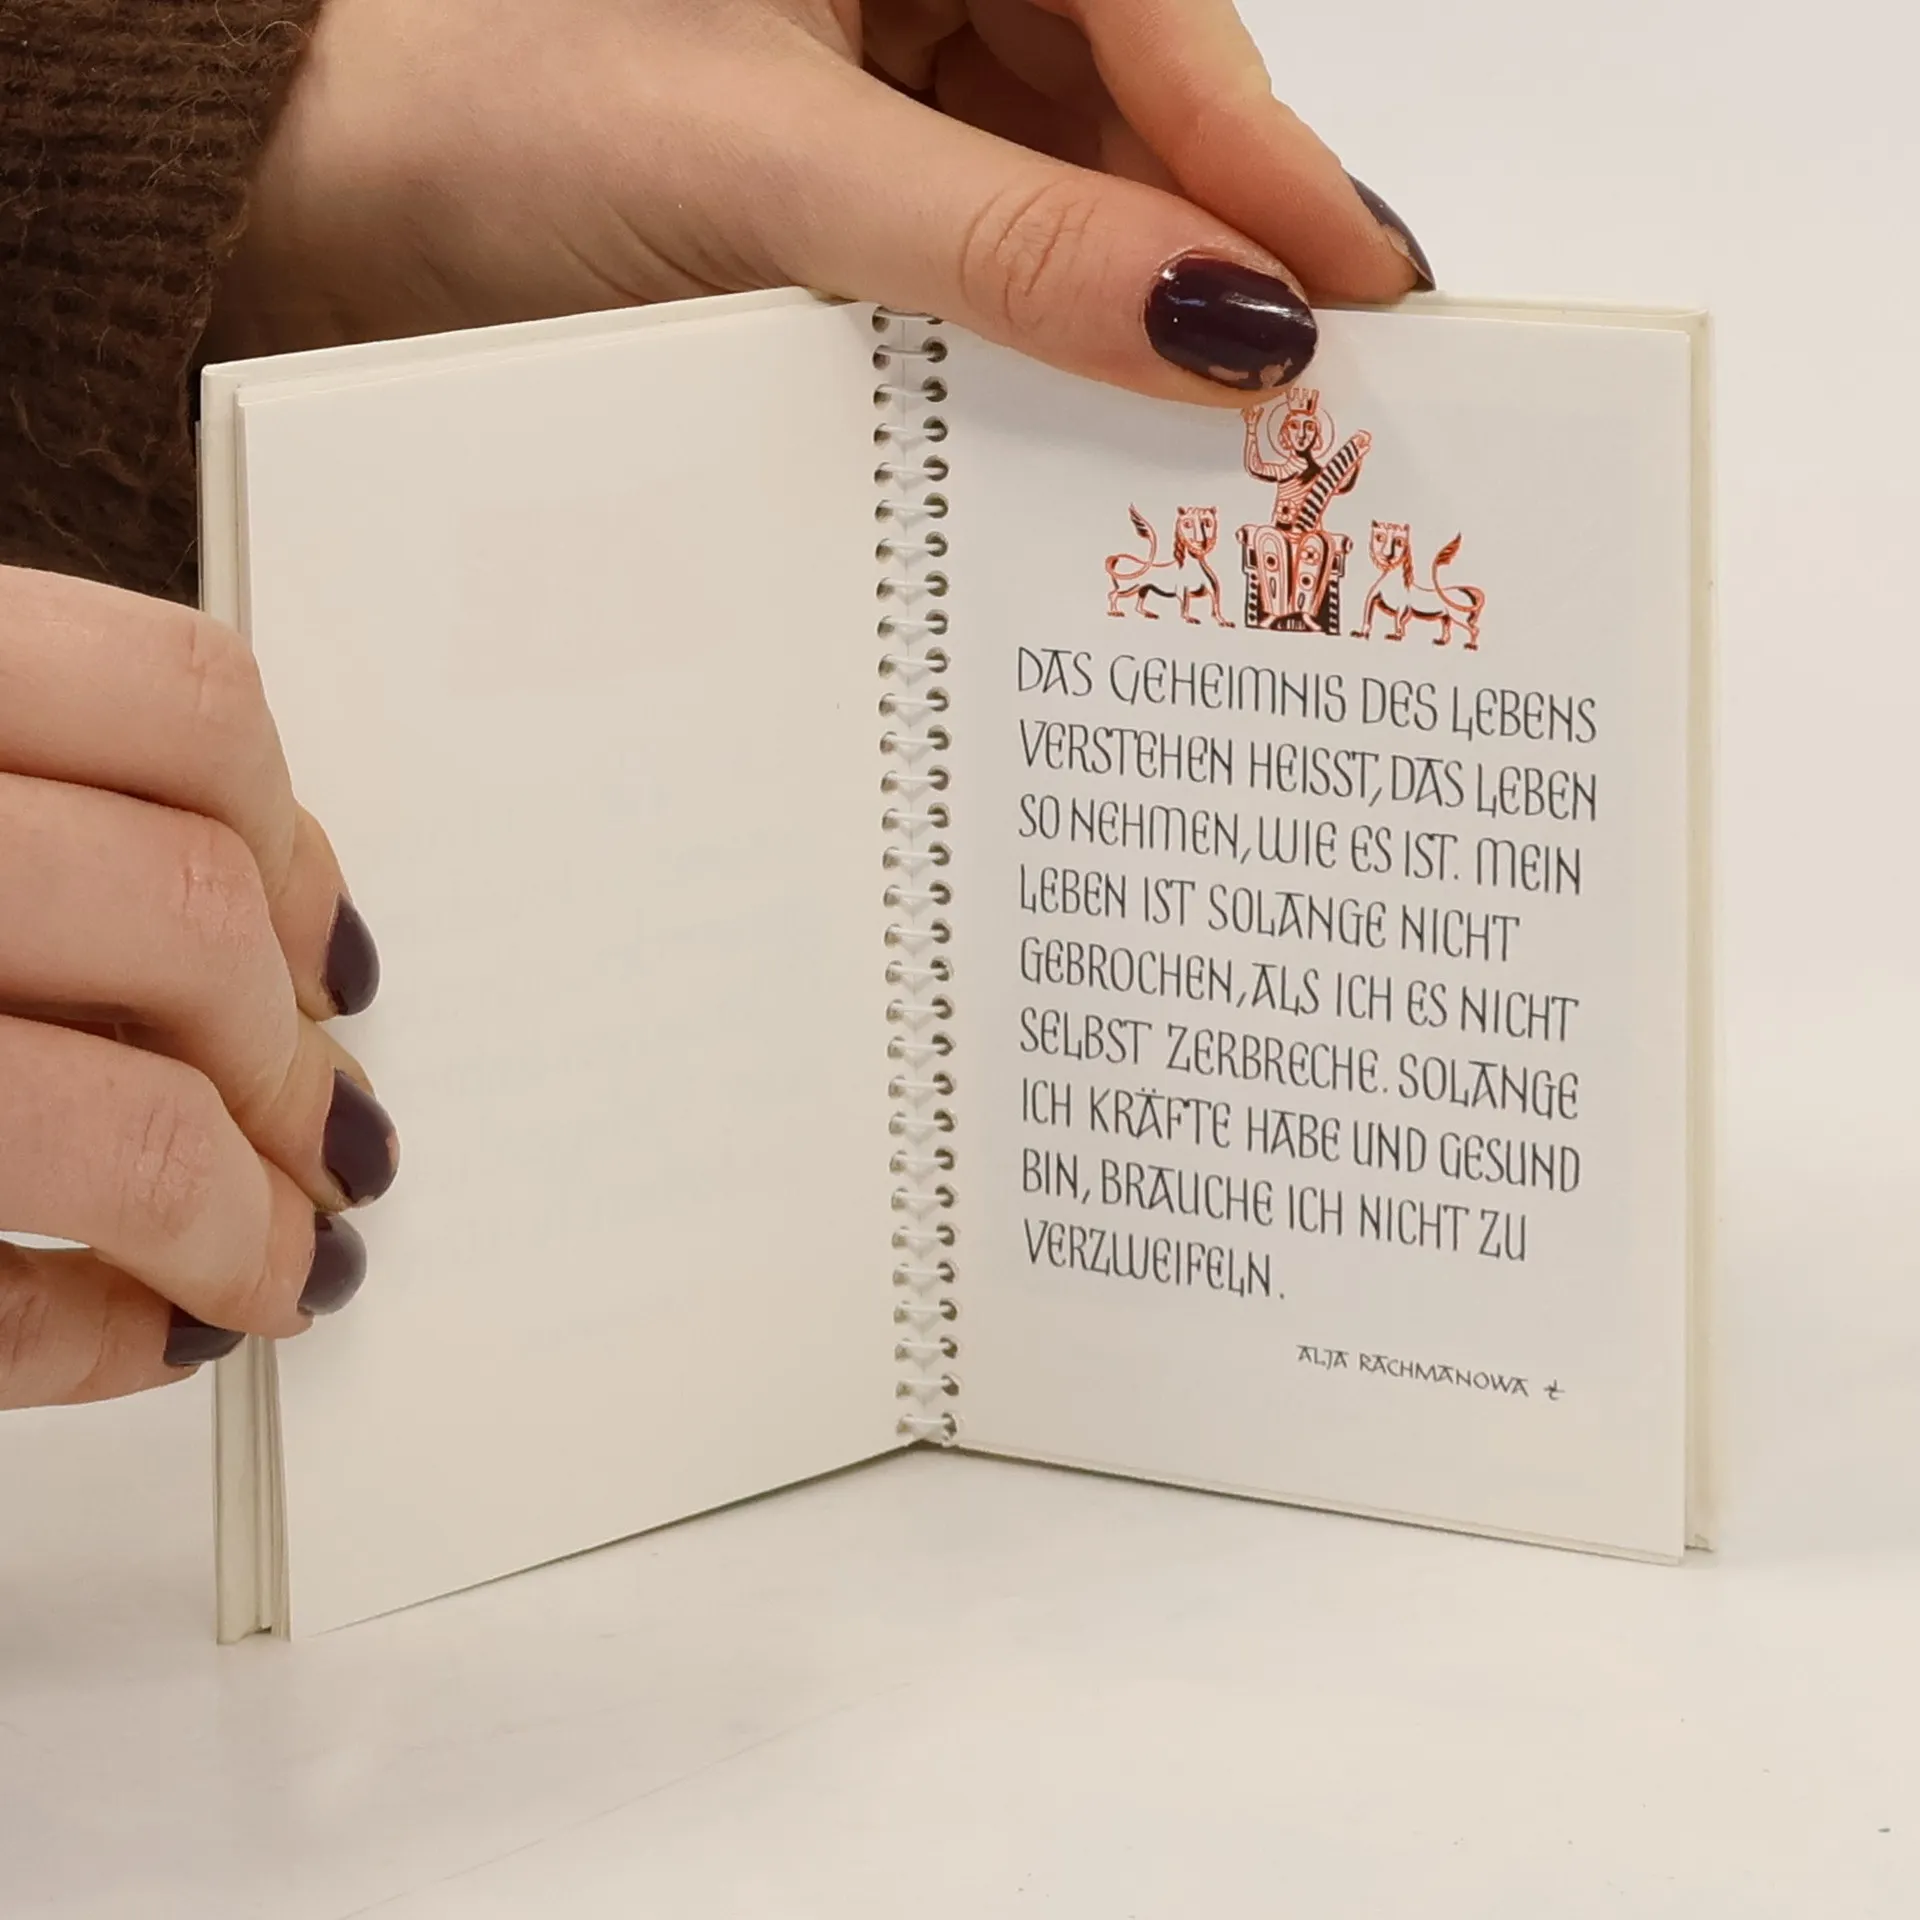 DAS GEHEIMNIS DES LEBENS
VERSTEHEN HEISST, DAS LEBEN
SO NEHMEN, WIE ES IST. MEIN
LEBEN IST SOLANGE NICHT
GEBROCHEN, ALS ICH ES NICHT
SELBST ZERBRECHE. SOLANGE
ICH KRÄFTE HABE UND GESUND
BIN, BRAUCHE ICH NICHT ZU
VERZWEIFELN.
ALJA RACHMANOWA